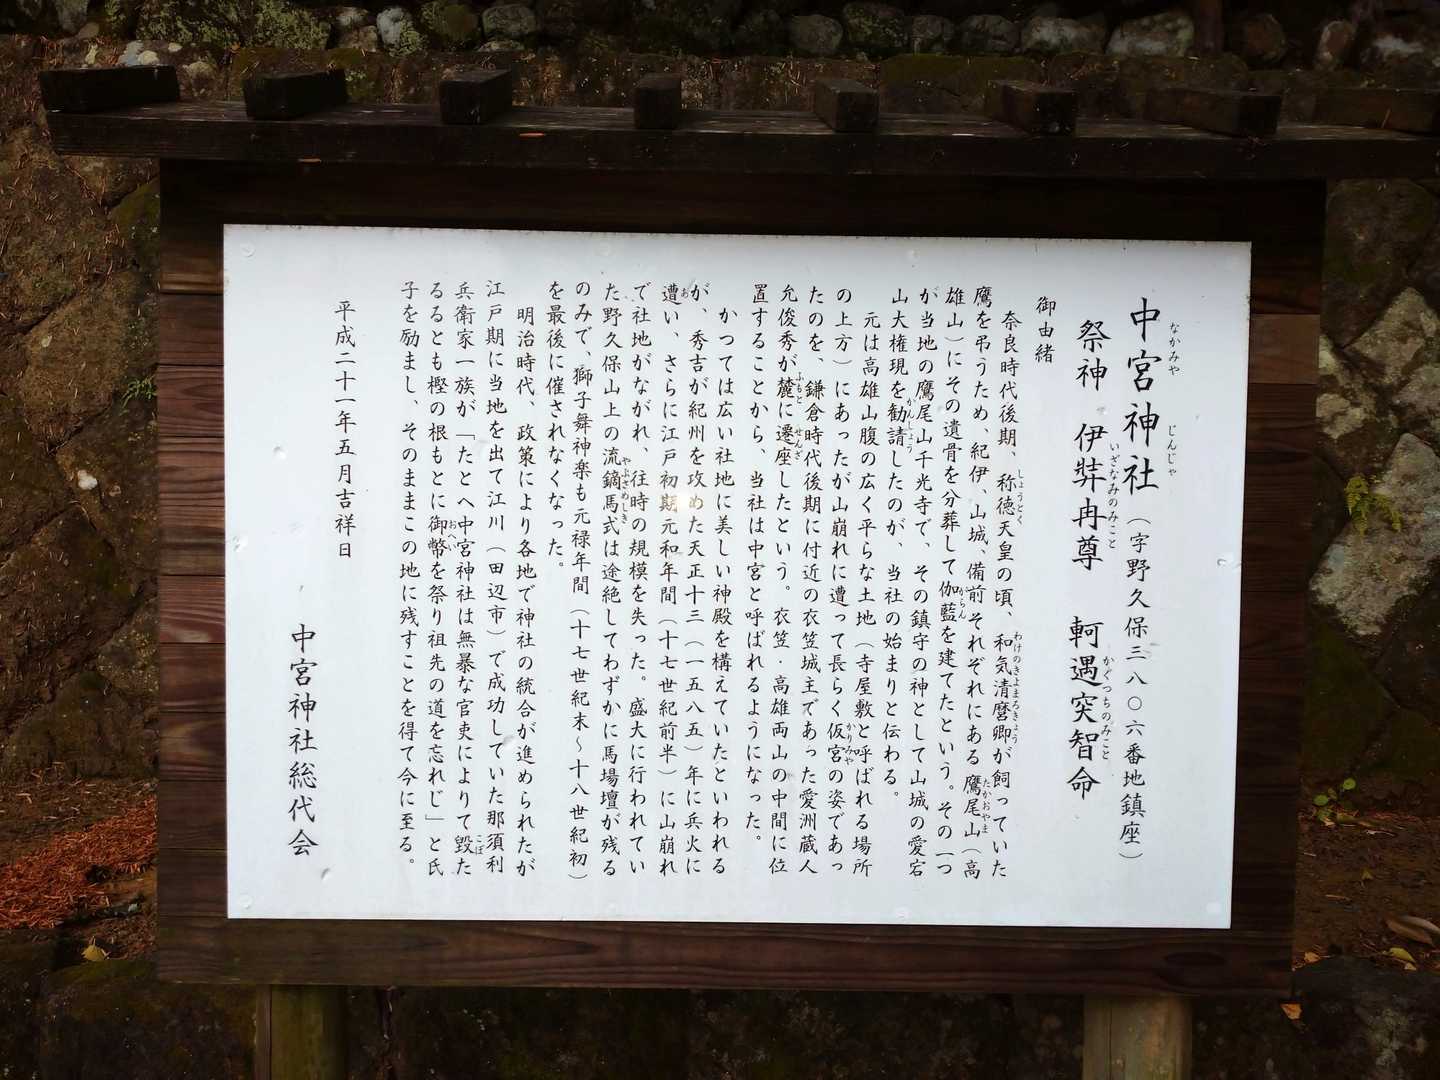 中宮神社（字野久保三八〇六番地鎮座）
祭神　伊弉冉尊　軻遇突智命
御由緒
奈良時代後期、称徳天皇の頃、和気清麿卿が飼っていた
鷹を弔うため、紀伊、山城、備前それぞれにある鷹尾山（高
雄山）にその遺骨を分葬して伽藍を建てたという。その一つ
が当地の鷹尾山千光寺で、その鎮守の神として山城の愛宕
山大権現を勧請したのが、当社の始まりと伝わる。
元は高雄山腹の広く平らな土地（寺屋敷と呼ばれる場所
の上方）にあったが山崩れに遭って長らく仮宮の姿であっ
たのを、鎌倉時代後期に付近の衣笠城主であった愛洲蔵人
允俊秀が麓に遷座したという。衣笠・高雄両山の中間に位
置することから、当社は中宮と呼ばれるようになった。
かつては広い社地に美しい神殿を構えていたといわれる
が、秀吉が紀州を攻めた天正十三（一五八五）年に兵火に
遭い、さらに江戸初期元和年間（十七世紀前半）に山崩れ
で社地がながれ、往時の規模を失った。盛大に行われてい
た野久保山上の流鏑馬式は途絶してわずかに馬場壇が残る
のみで、獅子舞神楽も元禄年間（十七世紀末～十八世紀初）
を最後に催されなくなった。
明治時代、政策により各地で神社の統合が進められたが
江戸期に当地を出て江川（田辺市）で成功していた那須利
兵衛家一族が「たとへ中宮神社は無暴な官吏によりて毀た
るるとも樫の根もとに御幣を祭り祖先の道を忘れじ」と氏
子を励まし、そのままこの地に残すことを得て今に至る。
平成二十一年五月吉祥日
中宮神社総代会